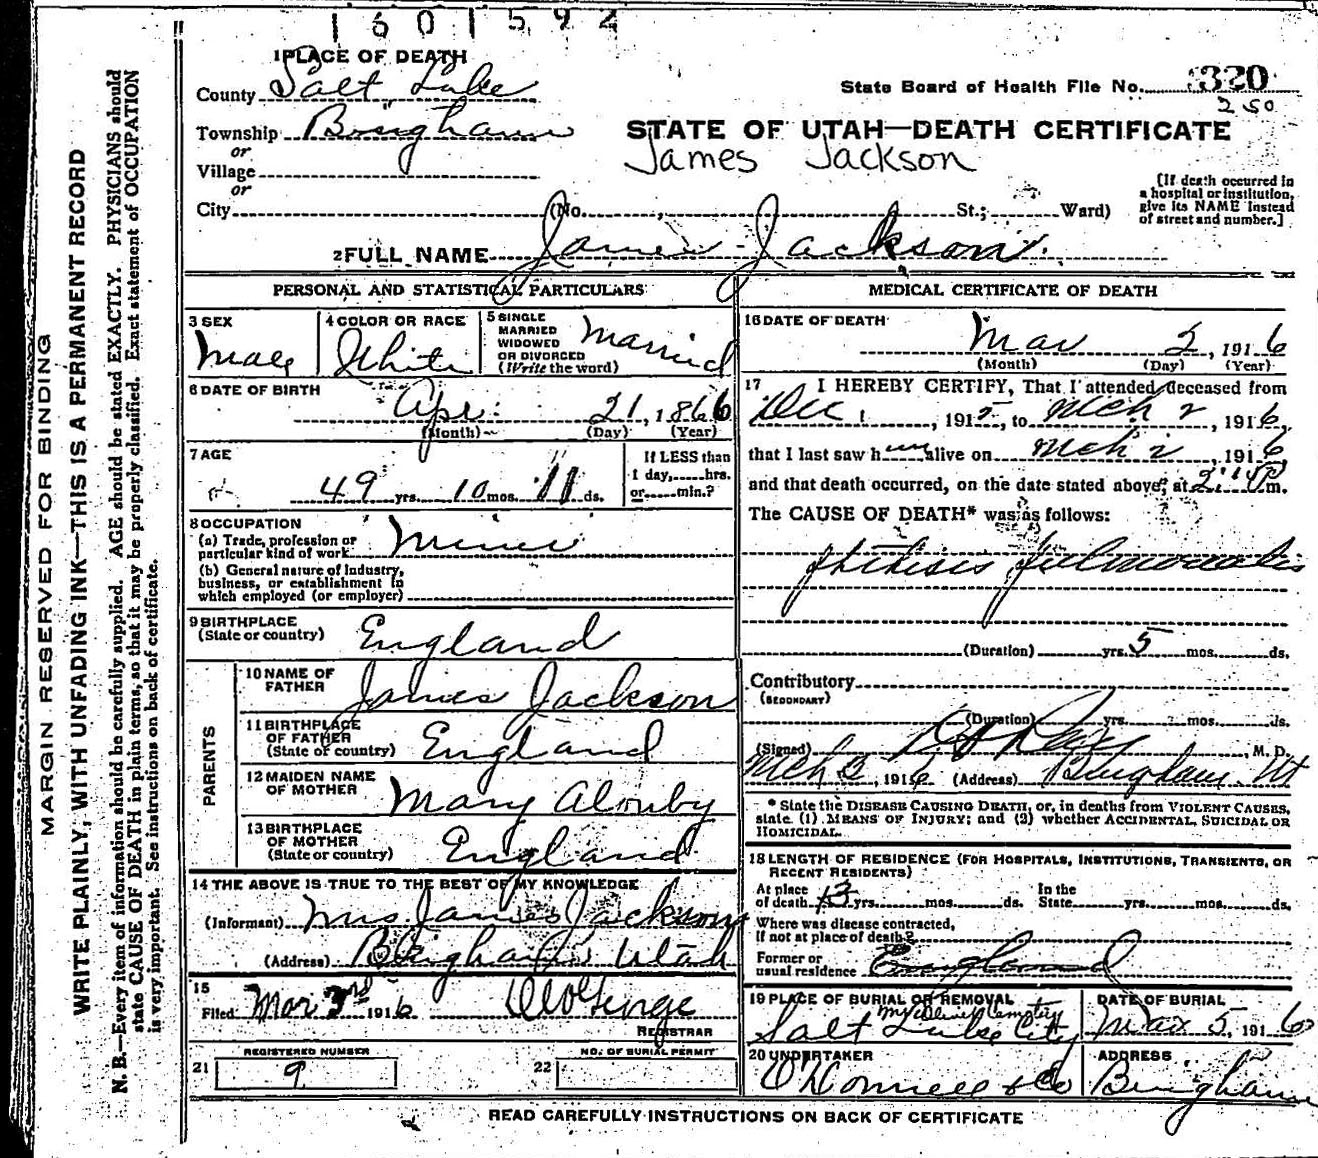 1601592
1 PLACE OF DEATH
County Salt Lake
State Board of Health File No. 320
250
Township Bingham
STATE OF UTAH—DEATH CERTIFICATE
or
James Jackson
Village
or
City (No. , St.; Ward)
[If death occurred in
a hospital or institution,
give its NAME instead
of street and number.]
2 FULL NAME James Jackson.
PERSONAL AND STATISTICAL PARTICULARS
3 SEX
Male
4 COLOR OR RACE
White
5 SINGLE
MARRIED
WIDOWED
OR DIVORCED
(Write the word)
Married
6 DATE OF BIRTH
Apr. 21, 1866
(Month) (Day) (Year)
7 AGE
49 yrs. 10 mos. 11 ds.
If LESS than
1 day, hrs.
or min.?
8 OCCUPATION
(a) Trade, profession or
particular kind of work Miner
(b) General nature of industry,
business, or establishment in
which employed (or employer)
9 BIRTHPLACE
(State or country) England
PARENTS
10 NAME OF
FATHER James Jackson
11 BIRTHPLACE
OF FATHER
(State or country) England
12 MAIDEN NAME
OF MOTHER Mary
13 BIRTHPLACE
OF MOTHER
(State or country) England
14 THE ABOVE IS TRUE TO THE BEST OF MY KNOWLEDGE
(Informant) Mrs James Jackson
(Address) Bingham Utah
15
Filed Mar 3rd 1916
REGISTRAR
REGISTERED NUMBER
21 9
NO. OF BURIAL PERMIT
22
MEDICAL CERTIFICATE OF DEATH
16 DATE OF DEATH
Mar 2, 1916
(Month) (Day) (Year)
17 I HEREBY CERTIFY, That I attended deceased from
Dec 1, 1915, to Mch 2, 1916,
that I last saw h alive on Mch 2, 1916
and that death occurred, on the date stated above, at m.
The CAUSE OF DEATH* was as follows:
Phthisis Pulmonalis
(Duration) yrs. 5 mos. ds.
Contributory
(SECONDARY)
(Duration) yrs. mos. ds.
(Signed) M. D.
Mch 3, 1916 (Address) Bingham, Ut
* State the DISEASE CAUSING DEATH, or, in deaths from VIOLENT CAUSES,
state (1) MEANS OF INJURY; and (2) whether ACCIDENTAL, SUICIDAL OR
HOMICIDAL.
18 LENGTH OF RESIDENCE (FOR HOSPITALS, INSTITUTIONS, TRANSIENTS, OR
RECENT RESIDENTS)
At place
of death 13 yrs. mos. ds. In the
State yrs. mos. ds.
Where was disease contracted,
if not at place of death?
Former or
usual residence England
19 PLACE OF BURIAL OR REMOVAL
Salt Lake City
DATE OF BURIAL
Mar 5, 1916
20 UNDERTAKER
O'Donnell & Co
ADDRESS
Bingham
READ CAREFULLY INSTRUCTIONS ON BACK OF CERTIFICATE
MARGIN RESERVED FOR BINDING
WRITE PLAINLY, WITH UNFADING INK—THIS IS A PERMANENT RECORD
N. B.—Every item of information should be carefully supplied. AGE should be stated EXACTLY. PHYSICIANS should
state CAUSE OF DEATH in plain terms, so that it may be properly classified. Exact statement of OCCUPATION
is very important. See instructions on back of certificate.